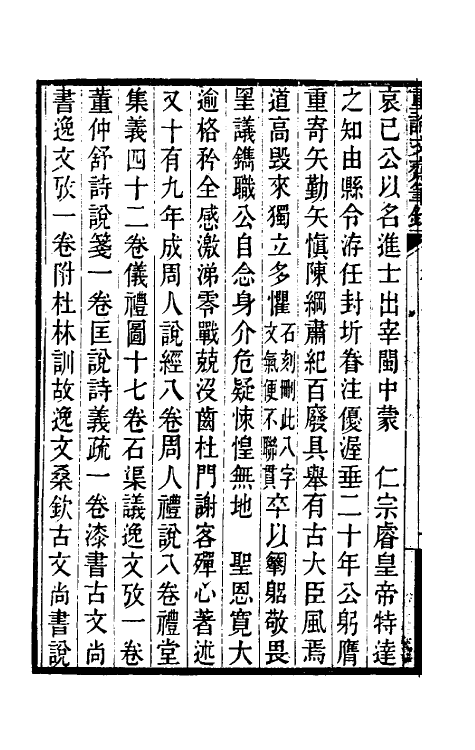 重論文齋筆錄
哀已公以名進士出宰閩中蒙　仁宗睿皇帝特達
之知由縣令洊任封圻眷注優渥垂二十年公躬膺
重寄矢勤矢愼陳綱肅紀百廢具舉有古大臣風焉
道高毀來獨立多懼石刻刪此八字文氣便不聯貫卒以匑躳敬畏
罣議鐫職公自念身介危疑悚惶無地　聖恩寬大
逾格矜全感激涕零戰兢沒齒杜門謝客殫心著述
又十有九年成周人說經八卷周人禮說八卷禮堂
集義四十二卷儀禮圖十七卷石渠議逸文攷一卷
董仲舒詩說箋一卷匡說詩義疏一卷漆書古文尚
書逸文攷一卷附杜林訓故逸文桑欽古文尚書說